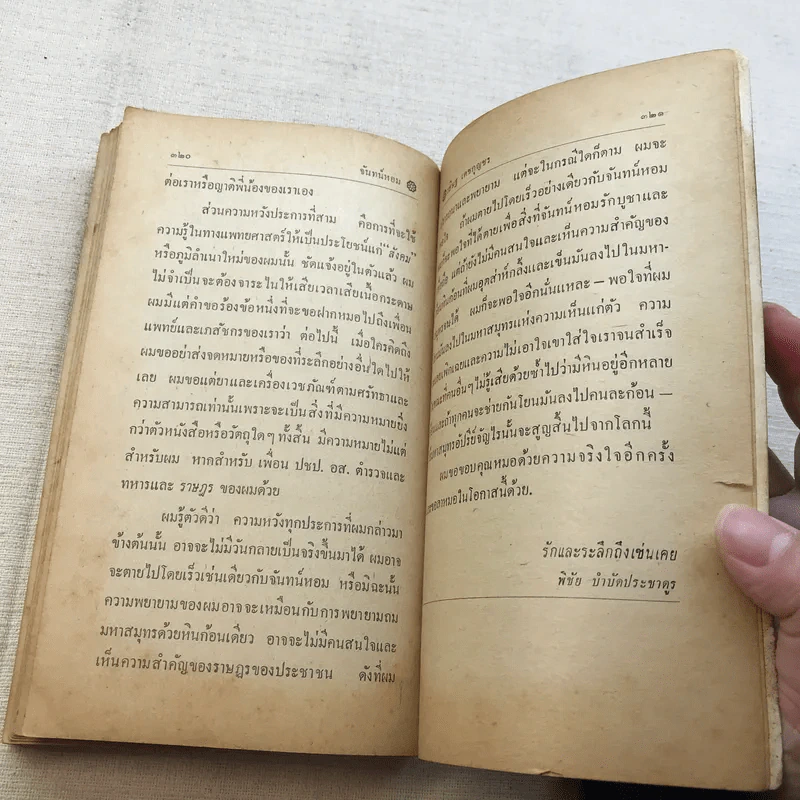 ๓๒๐
จันทน์หอม
ต่อเราหรือญาติพี่น้องของเราเอง
ส่วนความหวังประการที่สาม คือการที่จะใช้
ความรู้ในทางแพทยศาสตร์ให้เป็นประโยชน์แก่ "สังคม"
หรือภูมิลำเนาใหม่ของผมนั้น ชัดแจ้งอยู่ในตัวแล้ว ผม
ไม่จำเป็นจะต้องจาระไนให้เสียเวลาเสียเนื้อกระดาษ
ผมมีแต่คำขอร้องข้อหนึ่งที่จะขอฝากหมอไปถึงเพื่อน
แพทย์และเภสัชกรของเราว่า ต่อไปนี้ เมื่อใครคิดถึง
ผมขออย่าส่งจดหมายหรือของที่ระลึกอย่างอื่นใดไปให้
เลย ผมขอแต่ยาและเครื่องเวชภัณฑ์ตามศรัทธาและ
ความสามารถเท่านั้นเพราะจะเป็นสิ่งที่มีความหมายยิ่ง
กว่าตัวหนังสือหรือวัตถุใดๆ ทั้งสิ้น มีความหมายไม่แต่
สำหรับผม หากสำหรับ เพื่อน ปชป. อส. ตำรวจและ
ทหารและ ราษฎร ของผมด้วย
ผมรู้ตัวดีว่า ความหวังทุกประการที่ผมกล่าวมา
ข้างต้นนั้น อาจจะไม่มีวันกลายเป็นจริงขึ้นมาได้ ผมอาจ
จะตายไปโดยเร็วเช่นเดียวกับจันทน์หอม หรือมิฉะนั้น
ความพยายามของผมอาจจะเหมือนกับการพยายามถม
มหาสมุทรด้วยหินก้อนเดียว อาจจะไม่มีคนสนใจและ
เห็นความสำคัญของราษฎรของประชาชน ดังที่ผม
๓๒๑
เดชกุญชร
และพยายาม แต่จะในกรณีใดก็ตาม ผมจะ
ถ้าผมตายไปโดยเร็วอย่างเดียวกับจันทน์หอม
พอใจที่ได้ตายเพื่อสิ่งที่จันทน์หอมรักบูชาและ
แต่ถ้ายังไม่มีคนสนใจและเห็นความสำคัญของ
ก้อนที่ผมอุตส่าห์กลิ้งและเข็นมันลงไปในมหา-
ได้ ผมก็จะพอใจอีกนั่นแหละ – พอใจที่ผม
ลงไปในมหาสมุทรแห่งความเห็นแก่ตัว ความ
และความไม่เอาใจเขาใส่ใจเราจนสำเร็จ
ที่คนอื่นๆ ไม่รู้เสียด้วยซ้ำไปว่ามีหินอยู่อีกหลาย
และถ้าทุกคนจะช่วยกันโยนมันลงไปคนละก้อน –
มหาสมุทรอัปรีย์จัญไรนั้นจะสูญสิ้นไปจากโลกนี้
ผมขอขอบคุณหมอด้วยความจริงใจอีกครั้ง
หมอในโอกาสนี้ด้วย.
รักและระลึกถึงเช่นเคย
พิชัย บำบัดประชาดูร